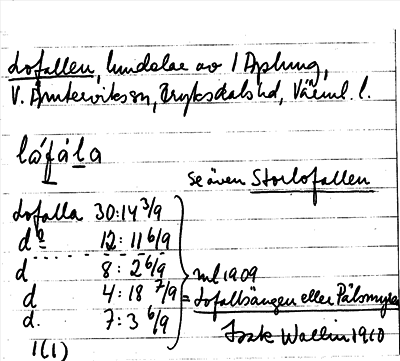 Lofallen, lundelae av 1 Aplung,
V. Ämtervikssn, Fryksdals hd, Värml. l.
låfála
se även Storlofallen
Lofalla 30:14 3/9
d o 12: 11 6/9
d 8: 2 6/9
d 4:18 7/9
d. 7:3 6/9
1(1)
ml 1909
= Lofallsängen eller
Isak Wallin 1910